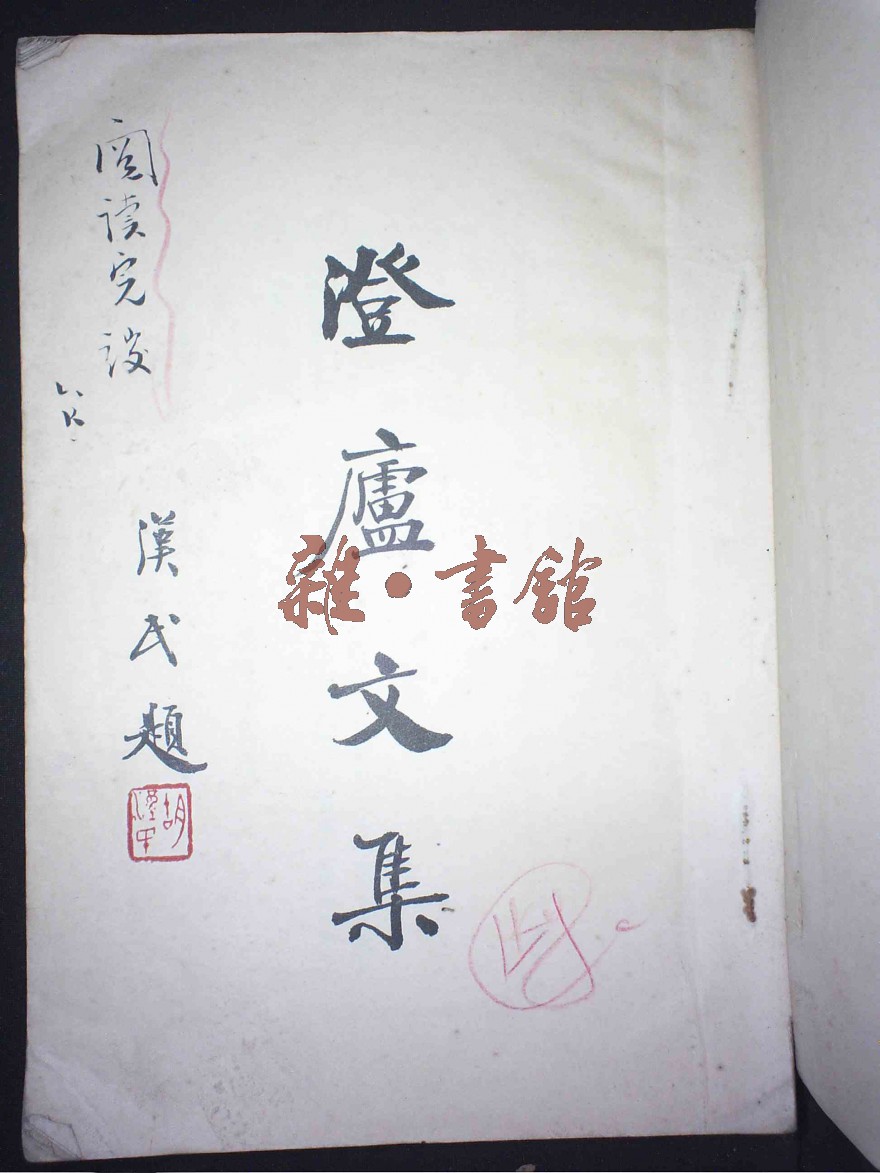 澄廬文集
漢民題
胡漢民
閱讀完
雜·書館